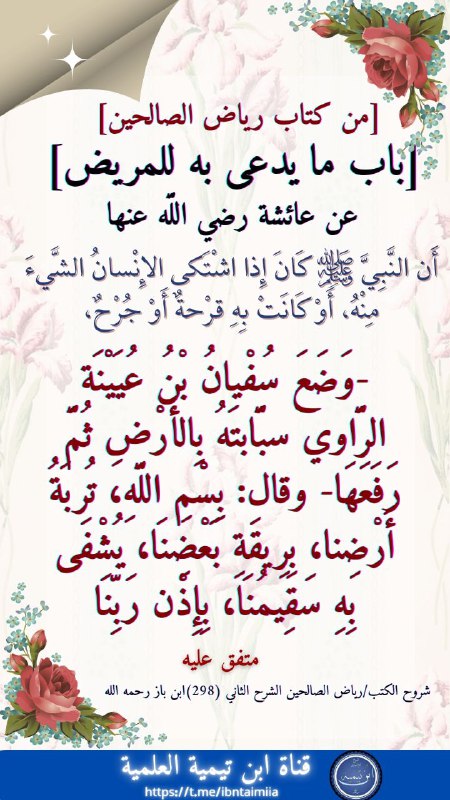 [من كتاب رياض الصالحين]
[باب ما يدعى به للمريض]
عن عائشة رضي الله عنها
أَن النَّبِيَّ ﷺ كَانَ إِذا اشْتَكى الإِنْسانُ الشَّيءَ
مِنْهُ، أَوْ كَانَتْ بِهِ قَرْحةٌ أَوْ جُرْحٌ،
-وَضَعَ سُفْيانُ بْنُ عُيَيْنَة
الرَّاوي سبَّابتَهُ بِالأَرْضِ ثُمَّ
رَفَعَهَا- وقال: بِسْمِ اللَّهِ، تُربَةُ
أَرْضِنا، بِرِيقَةِ بَعْضِنَا، يُشْفَى
بِهِ سَقِيمُنَا، بِإِذْن رَبِّنَا
متفق عليه
شروح الكتب/رياض الصالحين الشرح الثاني (298)ابن باز رحمه الله
قناة ابن تيمية العلمية
https://t.me/ibntaimiia